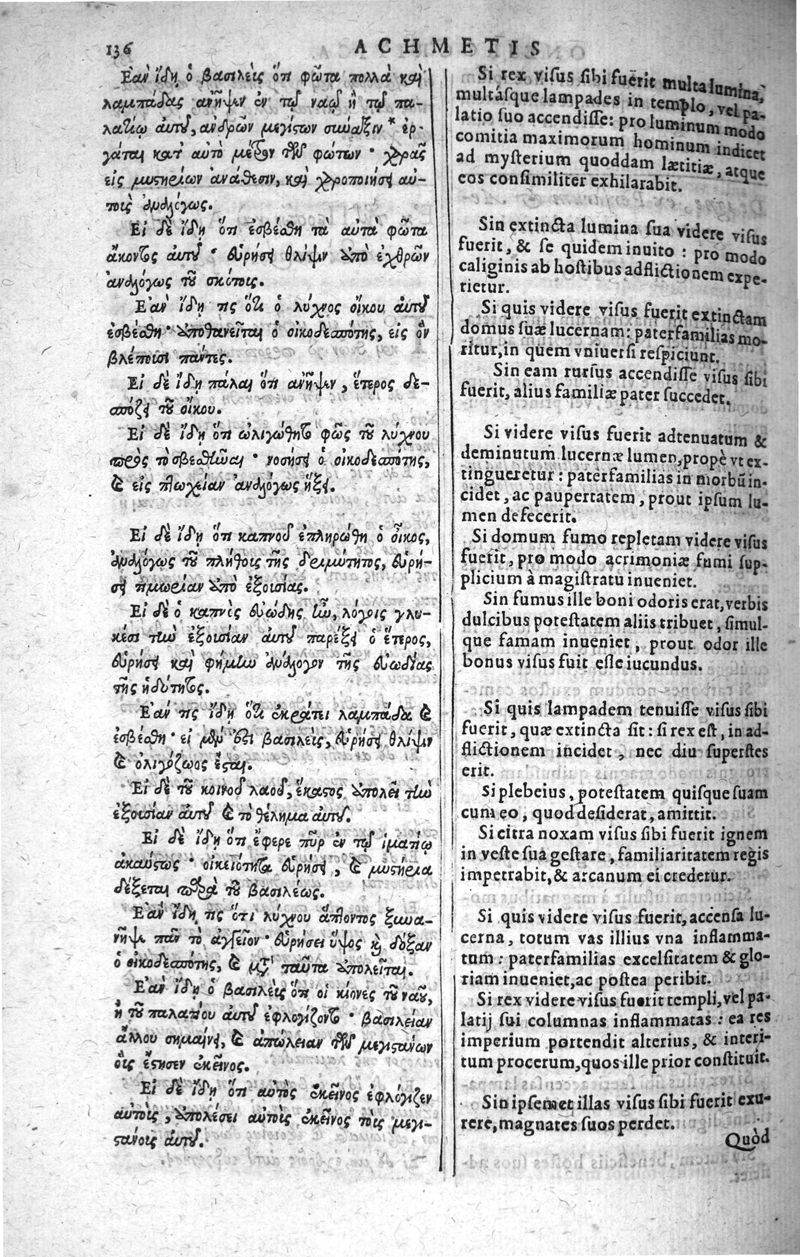 136
ACHMETIS
Ἐὰν ἴδῃ ὁ βασιλεὺς ὅτι φῶτα πολλὰ καὶ
λαμπάδας ἀνῆψεν ἐν τῷ ναῷ ἢ τῷ πα-
λατίῳ αὐτοῦ, ἀνδρῶν μεγίστων σύναξιν * ἐρ-
γάτῃ κατ' αὐτὸ μέτρον τῶν φώτων · χαρᾶς
εἰς μυστηρίων ἀνάθεσιν, καὶ χαροποιήσῃ αὐ-
τοὺς ἀναλόγως.
Εἰ δὲ ἴδῃ ὅτι ἐσβέσθη τὰ αὐτὰ φῶτα
ἄκοντος αὐτοῦ · εὑρήσει θλίψιν ὑπὸ ἐχθρῶν
ἀναλόγως τοῦ σκότους.
Ἐὰν ἴδῃ τις ὅτι ὁ λύχνος οἴκου αὐτοῦ
ἐσβέσθη · ἀποθανεῖται ὁ οἰκοδεσπότης, εἰς ὃν
βλέπουσι πάντες.
Εἰ δὲ ἴδῃ πάλιν ὅτι ἀνῆψεν, ἕτερος δε-
σπόζει τοῦ οἴκου.
Εἰ δὲ ἴδῃ ὅτι ὠλιγώθη τὸ φῶς τοῦ λύχνου
πρὸς τὸ σβεσθῆναι · νοσήσει ὁ οἰκοδεσπότης,
καὶ εἰς πτωχείαν ἀναλόγως ἥξει.
Εἰ δὲ ἴδῃ ὅτι καπνοῦ ἐπληρώθη ὁ οἶκος,
ἀναλόγως τοῦ πλήθους τῆς δριμύτητος, εὑρή-
σει τιμωρίαν ὑπὸ ἐξουσίας.
Εἰ δὲ ὁ καπνὸς εὐώδης ἦν, λόγοις γλυ-
κέσι τὴν ἐξουσίαν αὐτοῦ παρέξει ὁ ἕτερος,
εὑρήσει καὶ φήμην ἀνάλογον τῆς εὐωδίας
τῆς ἡδύτητος.
Ἐάν τις ἴδῃ ὅτι ἐκράτει λαμπάδα καὶ
ἐσβέσθη · εἰ μὲν ἔστι βασιλεὺς, εὑρήσει θλίψιν
καὶ ὀλιγόζωος ἔσται.
Εἰ δὲ τοῦ κοινοῦ λαοῦ, ἕκαστος ἀπολεῖ τὴν
ἐξουσίαν αὐτοῦ καὶ τὸ θέλημα αὐτοῦ.
Εἰ δὲ ἴδῃ ὅτι ἔφερε πῦρ ἐν τῷ ἱματίῳ
ἀκαύστως · οἰκειότητα εὑρήσει, καὶ μυστήρια
δέξεται παρὰ τοῦ βασιλέως.
Ἐὰν ἴδῃ τις ὅτι λύχνου ἅπτοντος ξυνα-
νῆψε πᾶν τὸ ἀγγεῖον · εὑρήσει ὕψος καὶ δόξαν
ὁ οἰκοδεσπότης, καὶ μετὰ ταῦτα ἀπολεῖται.
Ἐὰν ἴδῃ ὁ βασιλεὺς ὅτι οἱ κίονες τοῦ ναοῦ,
ἢ τοῦ παλατίου αὐτοῦ ἐφλογίζοντο · βασιλείαν
ἄλλου σημαίνει, καὶ ἀπώλειαν τῶν μεγιστάνων
οὓς ἔστησεν ἐκεῖνος.
Εἰ δὲ ἴδῃ ὅτι αὐτὸς ἐκεῖνος ἐφλόγιζεν
αὐτοὺς, ἀπολέσει αὐτοὺς ἐκεῖνος τοὺς μεγι-
στάνους αὐτοῦ.
Si rex visus sibi fuerit multa lumina,
multasque lampades in templo, vel pa-
latio suo accendisse: pro luminum modo
comitia maximorum hominum indicet
ad mysterium quoddam lætitiæ, atque
eos consimiliter exhilarabit.
Sin extincta lumina sua videre visus
fuerit, & se quidem inuito: pro modo
caliginis ab hostibus adflictionem expe-
rietur.
Si quis videre visus fuerit extinctam
domus suæ lucernam: paterfamilias mo-
ritur, in quem vniuersi respiciunt.
Sin eam rursus accendisse visus sibi
fuerit, alius familiæ pater succedet.
Si videre visus fuerit adtenuatum &
deminutum lucernæ lumen, propè vt ex-
tingueretur: paterfamilias in morbũ in-
cidet, ac paupertatem, prout ipsum lu-
men defecerit.
Si domum fumo repletam videre visus
fuerit, pro modo acrimoniæ fumi sup-
plicium à magistratu inueniet.
Sin fumus ille boni odoris erat, verbis
dulcibus potestatem aliis tribuet, simul-
que famam inueniet, prout odor ille
bonus visus fuit esse iucundus.
Si quis lampadem tenuisse visus sibi
fuerit, quæ extincta sit: si rex est, in ad-
flictionem incidet, nec diu superstes
erit.
Si plebeius, potestatem quisque suam
cum eo, quod desiderat, amittit.
Si citra noxam visus sibi fuerit ignem
in veste sua gestare, familiaritatem regis
impetrabit, & arcanum ei credetur.
Si quis videre visus fuerit, accensa lu-
cerna, totum vas illius vna inflamma-
tum: paterfamilias excelsitatem & glo-
riam inueniet, ac postea peribit.
Si rex videre visus fuerit templi, vel pa-
latij sui columnas inflammatas: ea res
imperium portendit alterius, & interi-
tum procerum, quos ille prior constituit.
Sin ipsemet illas visus sibi fuerit exu-
rere, magnates suos perdet.
Quòd